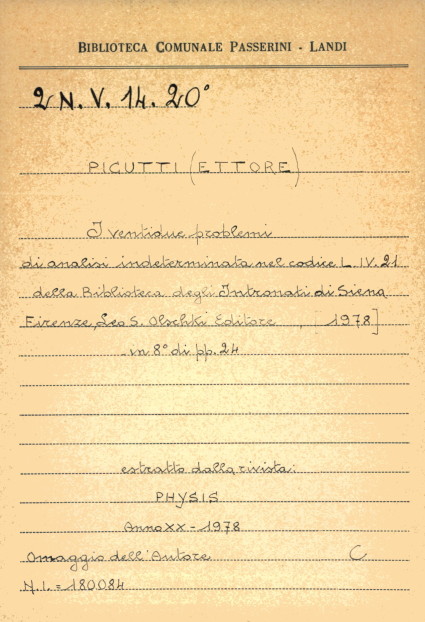 BIBLIOTECA COMUNALE PASSERINI - LANDI
2 N. V. 14. 20°
PICUTTI (ETTORE)
I ventidue problemi
di analisi indeterminata nel codice L. IV. 21
della Biblioteca degli Intronati di Siena
Firenze, Leo S. Olschki Editore , 1978]
in 8° di pp. 24
estratto dalla rivista:
PHYSIS
Anno XX - 1978
Omaggio dell'Autore C
N. I. = 180084